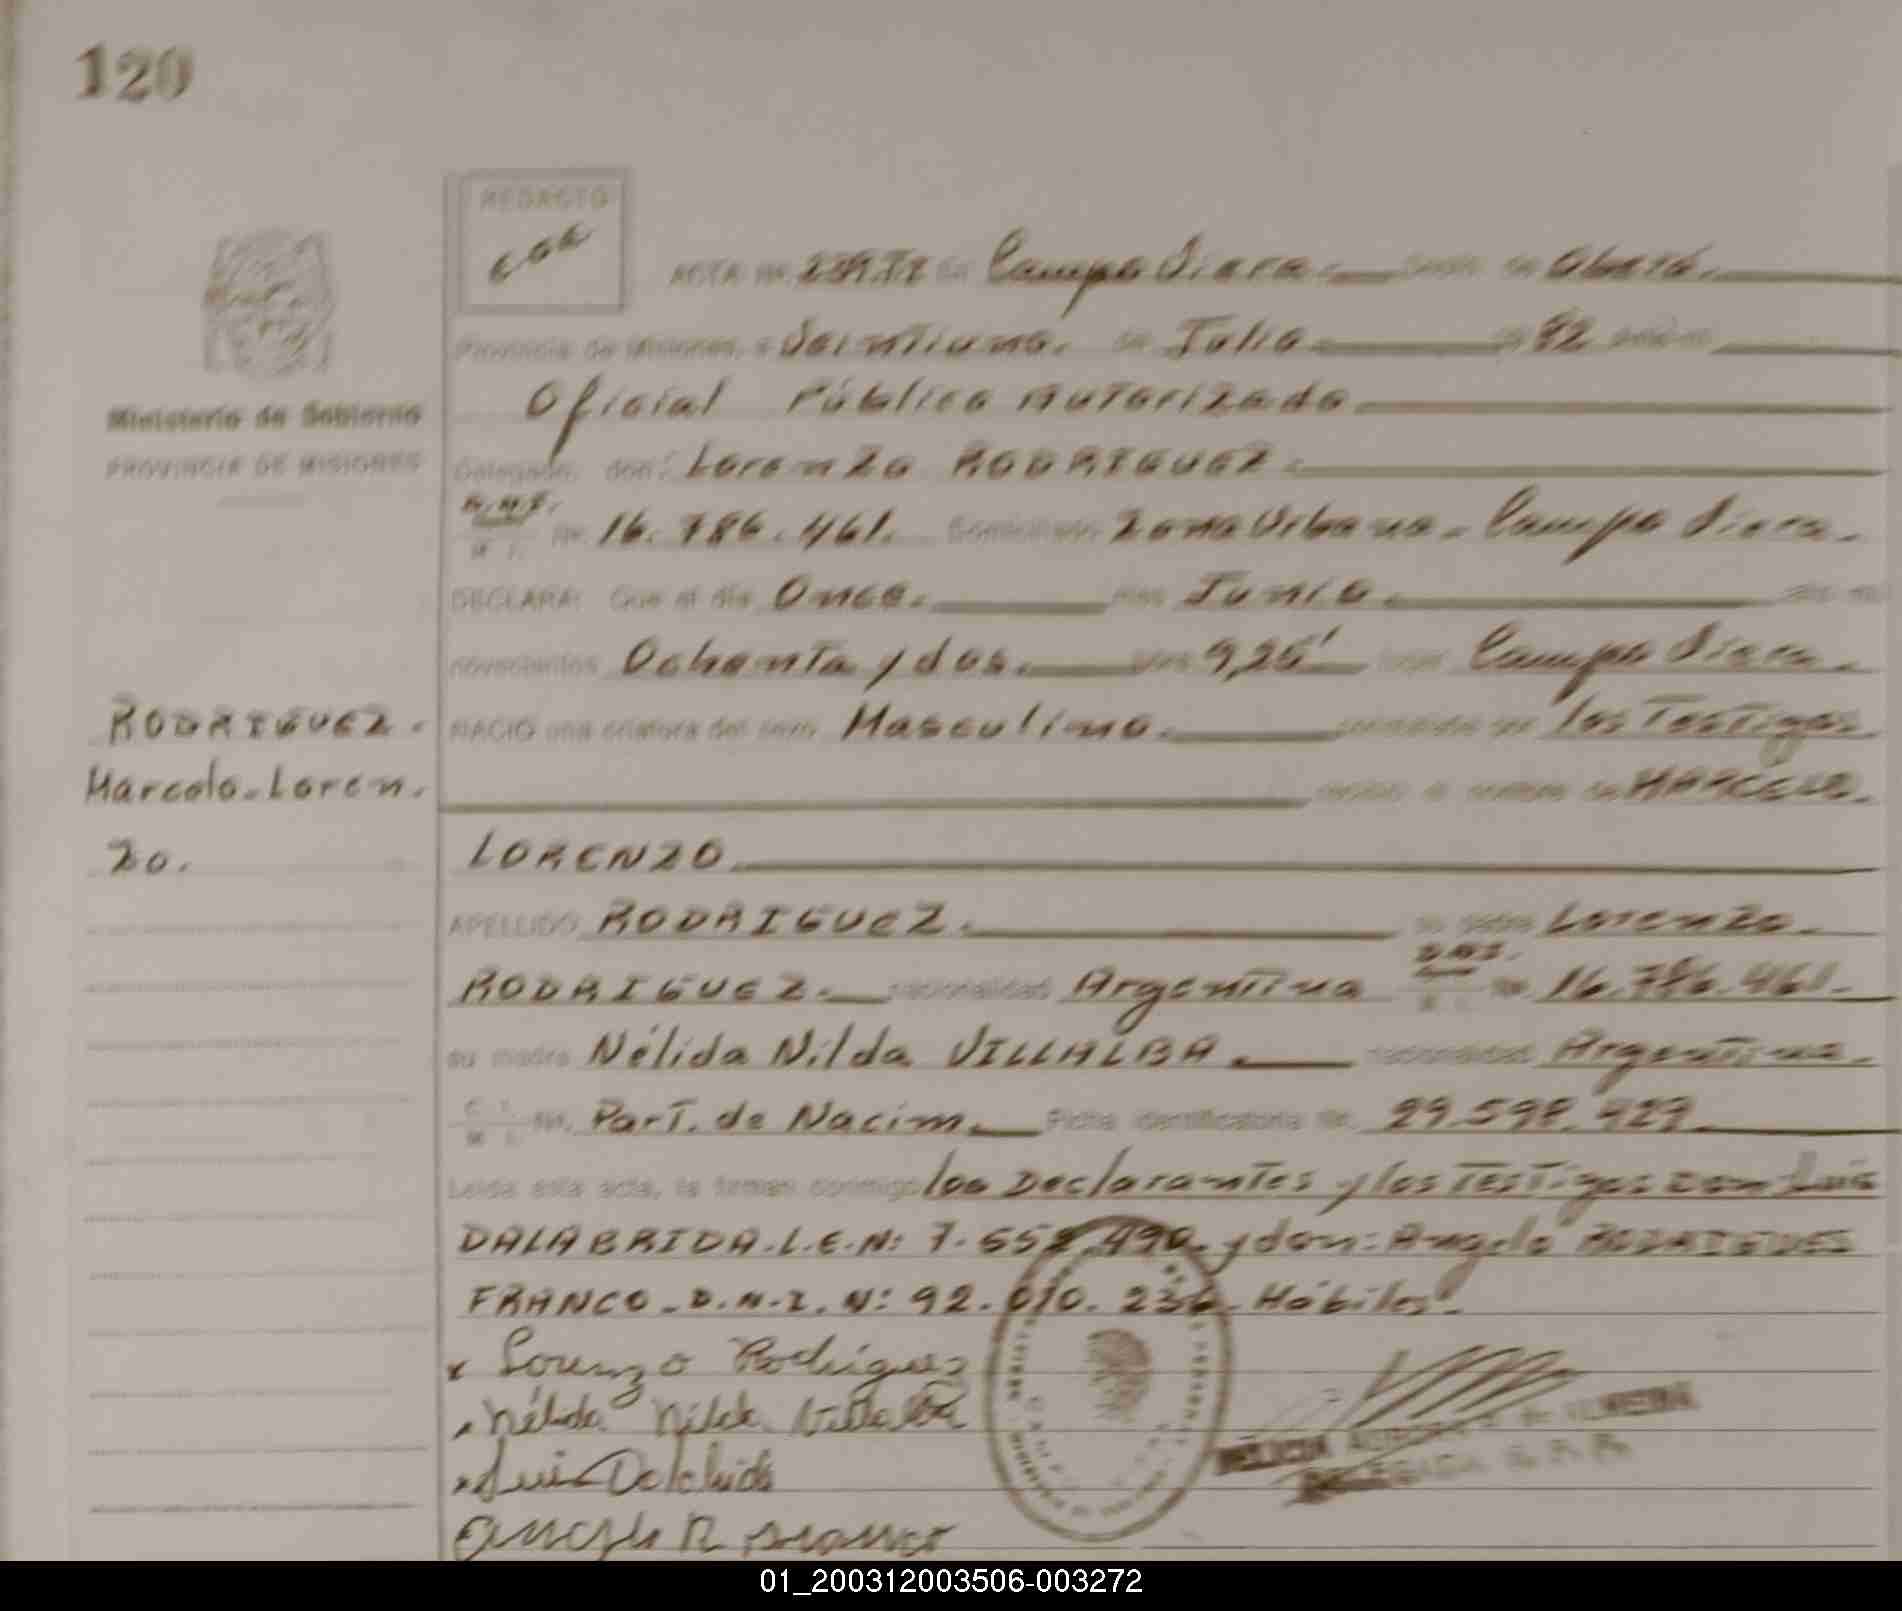 120
REDACTO
ACTA Nº 239.T2 en Campo Viera. Depto. de Oberá.
Provincia de Misiones, a Veintiuno. de Julio de 82 ante mi
Oficial Público Autorizado
Ministerio de Gobierno
PROVINCIA DE MISIONES
Delegado, don: Lorenzo RODRIGUEZ.
D.N.I.
M. I. Nº 16.786.461. Domiciliado Zona Urbana. Campo Viera.
DECLARA: Que el día Once. mes Junio. año mil
novecientos Ochenta y dos. hora 9,25' lugar Campo Viera.
RODRIGUEZ. NACIO una criatura del sexo Masculino. los Testigos
Marcelo-Loren. recibió el nombre de MARCELO.
zo. LORENZO.
APELLIDO RODRIGUEZ. su padre Lorenzo.
D.N.I.
RODRIGUEZ. nacionalidad Argentina M. I. Nº 16.786.461.
su madre Nélida Nilda VILLALBA. nacionalidad Argentina.
C. I.
M. I. Nº. Part. de Nacim. Ficha identificatoria Nº. 29.598.429.
Leida esta acta, la firman conmigo los Declarantes y los Testigos Don Luis
DALABRIDA.L.E.N: 7.658.490. y don: Angelo RODRIGUES
FRANCO. D.N.I. N: 92.010.236. Hábiles.
x Lorenzo Rodriguez
Nélida Nilda Villalba
Luis Dalabrida
Angelo R Franco
DELEGADA
01_200312003506-003272